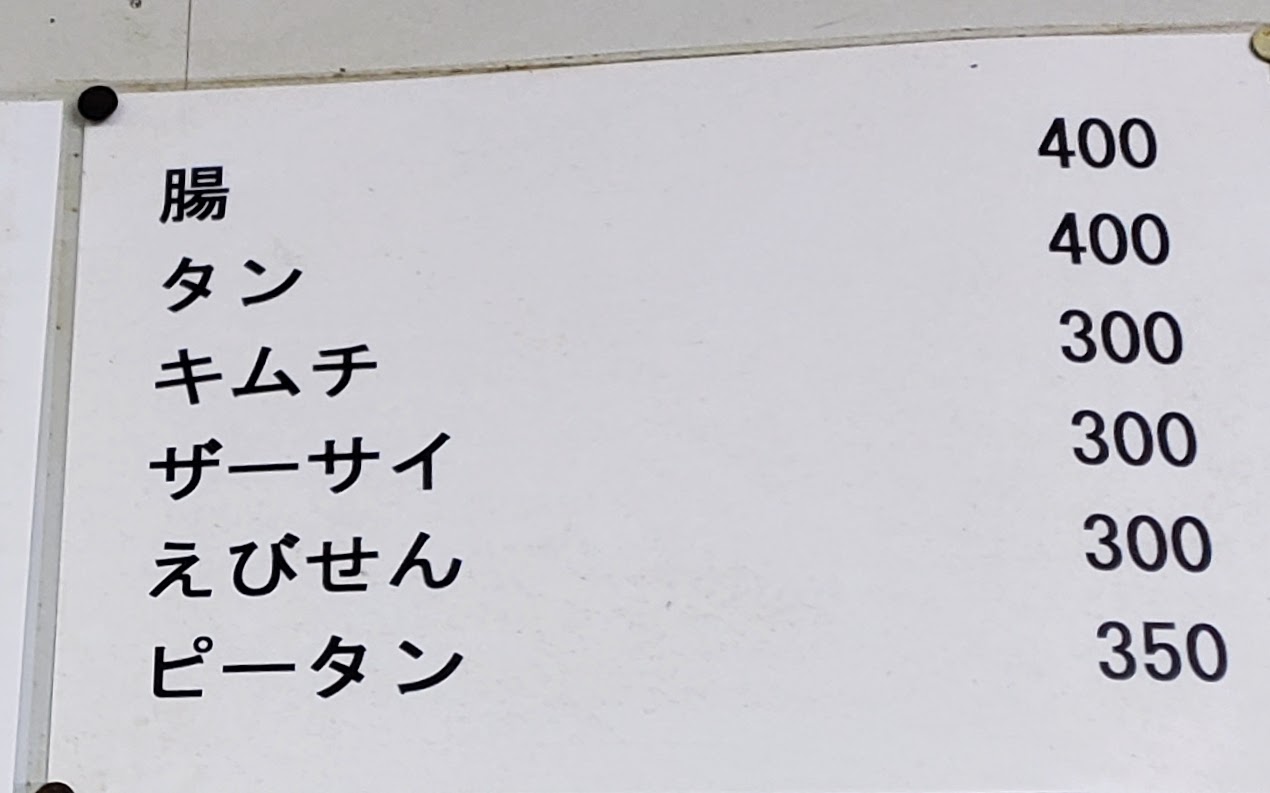 腸 400
タン 400
キムチ 300
ザーサイ 300
えびせん 300
ピータン 350